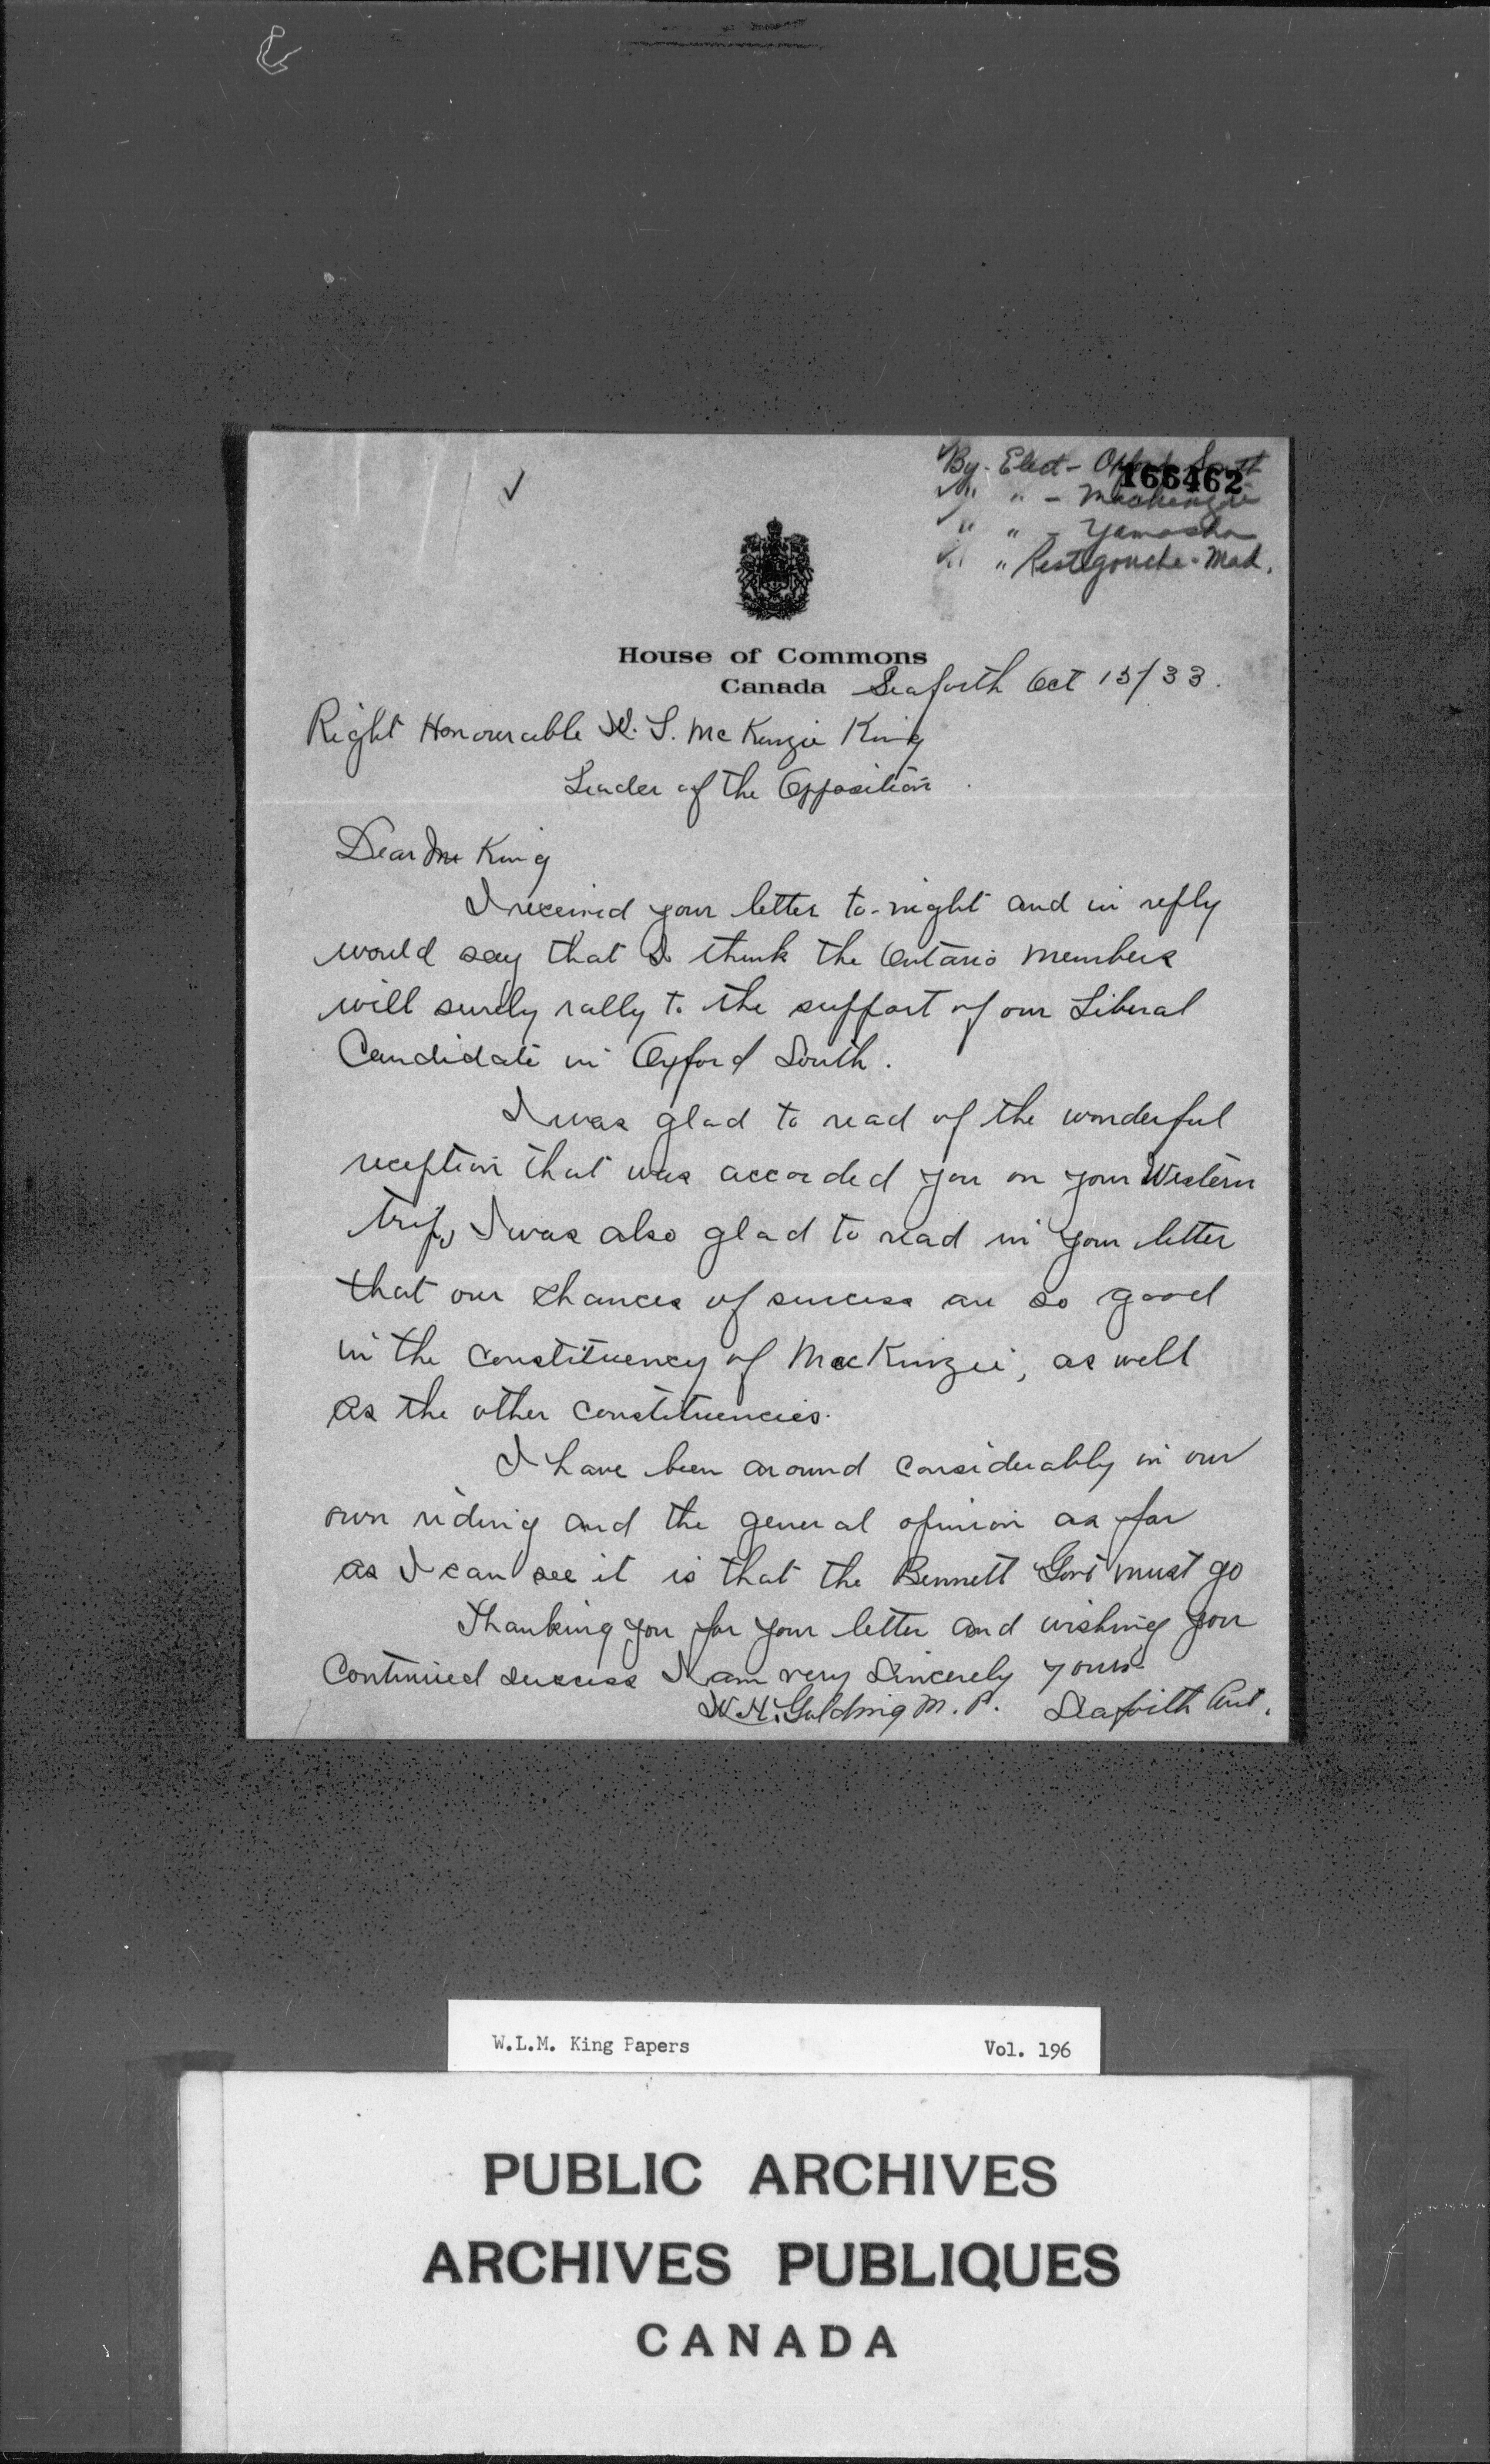 ✓
By. Elect - Oxford South
166462
" " - Mackenzie
" " - Yamaska
" " Restigouche - Mad.
House of Commons
Canada Seaforth Oct 13/33.
Right Honourable W. L. McKenzie King
Leader of the Opposition
Dear Mr King
I received your letter to-night and in reply
would say that I think the Ontario members
will surely rally to the support of our Liberal
Candidate in Oxford South.
I was glad to read of the wonderful
reception that was accorded you on your Western
trip, I was also glad to read in your letter
that our chances of success are so good
in the constituency of MacKenzie, as well
as the other constituencies.
I have been around considerably in our
own riding and the general opinion as far
as I can see it is that the Bennett Govt must go
Thanking you for your letter and wishing you
Continued success I am very Sincerely yours
W. H. Golding M. P. Seaforth Ont.
W.L.M. King Papers Vol. 196
PUBLIC ARCHIVES
ARCHIVES PUBLIQUES
CANADA